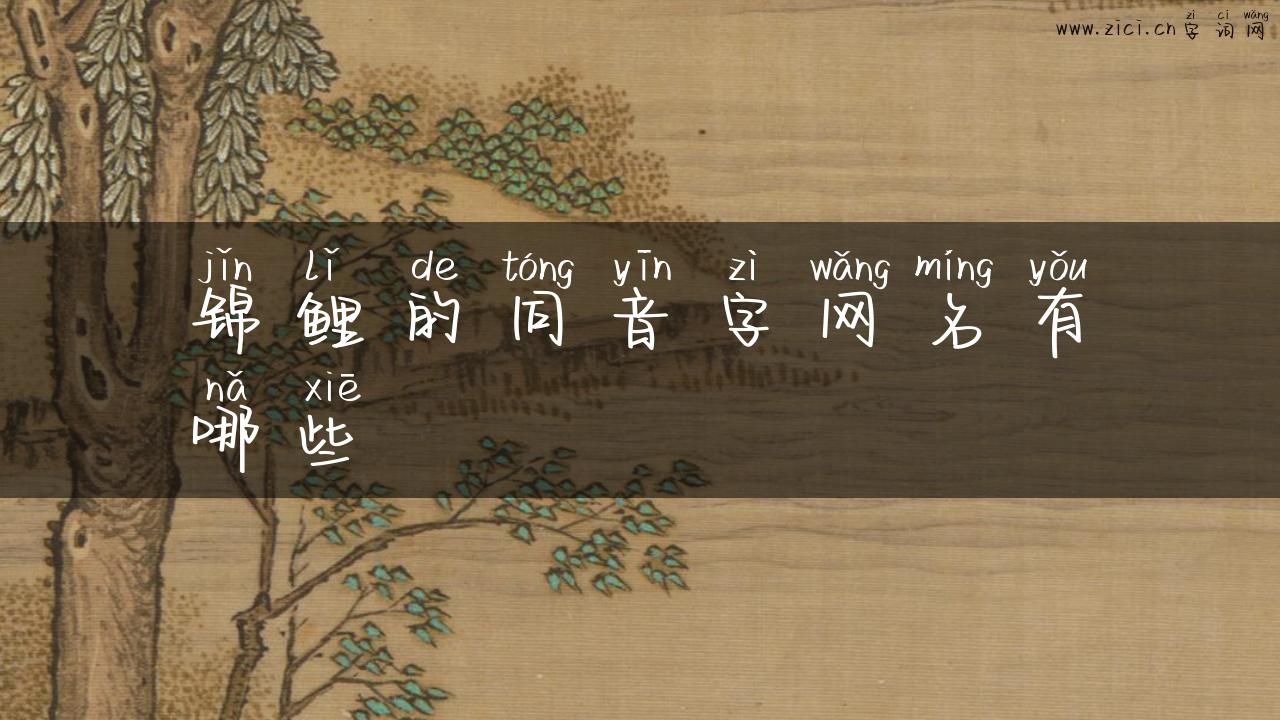 zì cí wǎng
www.zici.cn 字词网
jǐn lǐ de tóng yīn zì wǎng míng yǒu
锦鲤的同音字网名有
nǎ xiē
哪些